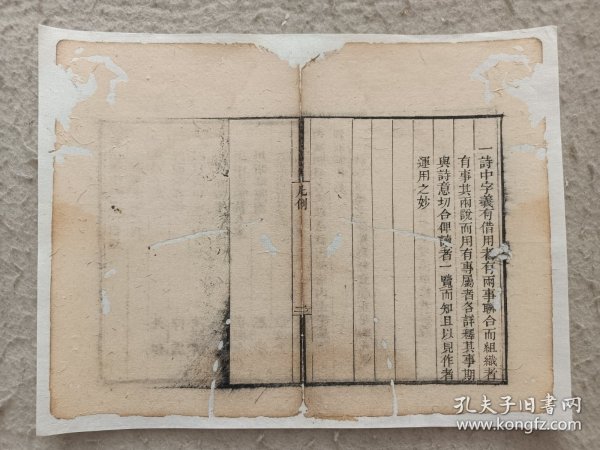 一詩中字義有借用者有兩事聯合而組織者
有事其兩說而用有專屬者各詳釋其事期
與詩意切合俾讀者一覽而知且以見作者
運用之妙
凡例
二
孔夫子旧書网
www.kongfz.com